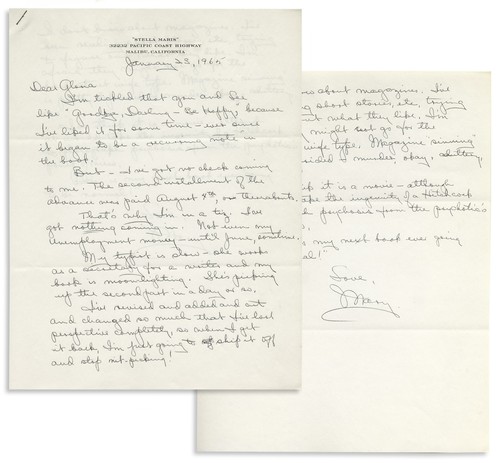 "STELLA MARIS"
32232 PACIFIC COAST HIGHWAY
MALIBU, CALIFORNIA
January 23, 1965
Dear Gloria
I'm tickled that you and Lee
like "Goodbye, Darling – Be Happy," because
I've liked it for some time – ever since
it began to be a recurring note in
the book.
But – I've got no check coming
to me. The second installment of the
advance was paid August 4th, on
That's why I'm in a tizzy. I've
got nothing coming in. Not even my
unemployment money – until June,
My typist is slow – she works
as a secretary for a writer and my
book is moonlighting. She's picking
up the second part in a day or so.
I've revised and added and cut
and changed so much that I've lost
perspective completely, so when I get
it back I'm just going to ship it off
and stop nit-picking!
about magazines. I've
about stories, etc, trying
what they like, I'm
might not go for the
wife type. Magazine
murder okay,
it is a movie – although
the ingenuity of a Hitchcock
psychosis from the psychotic's
my next book ever going
Love,